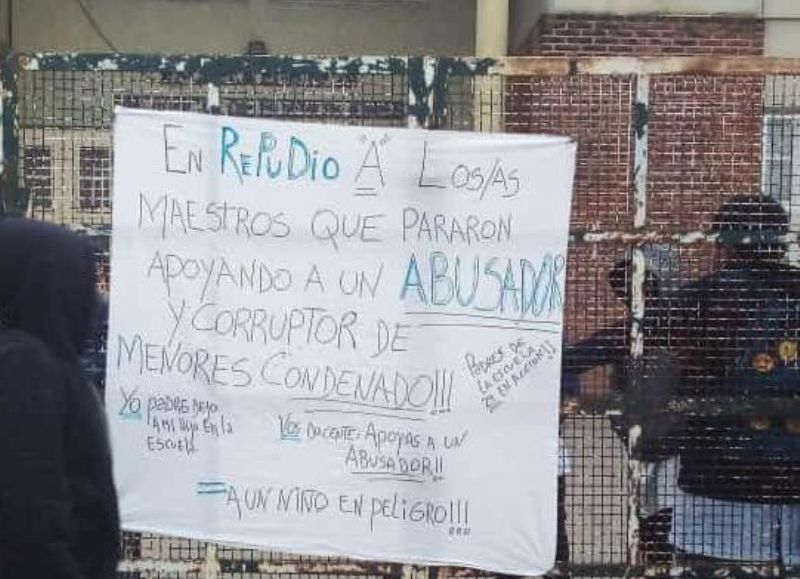 EN REPUDIO "A" LOS/AS
MAESTROS QUE PARARON
APOYANDO A UN ABUSADOR
Y CORRUPTOR DE
MENORES CONDENADO!!!
PADRES DE
LA ESCUELA
EN ACCIÓN!!
YO PADRE DEJO
A MI HIJO EN LA
ESCUELA.
VOS DOCENTE, APOYAS A UN
ABUSADOR!!
= A UN NIÑO EN PELIGRO!!!